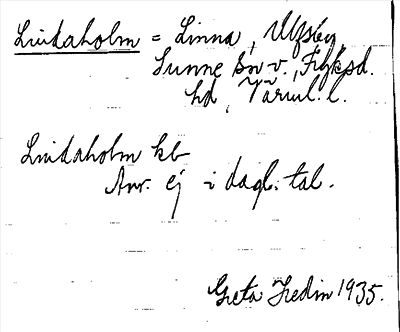 Lindaholm = Linna, Ulfsby
Sunne sn v., Fryksd.
hd, Värml. l.
Lindaholm kb
Anv. ej i dagl. tal.
Greta Hedin 1935.